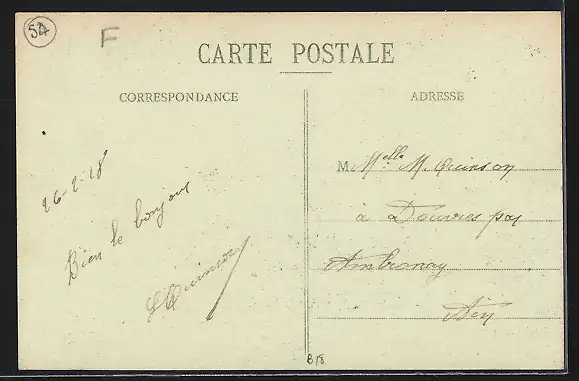 52
F
CARTE POSTALE
CORRESPONDANCE
ADRESSE
26-2-18
Bien le bonjour
Quinson
M Melle M. Quinson
à Douvres par
Ambronay
Ain
B18